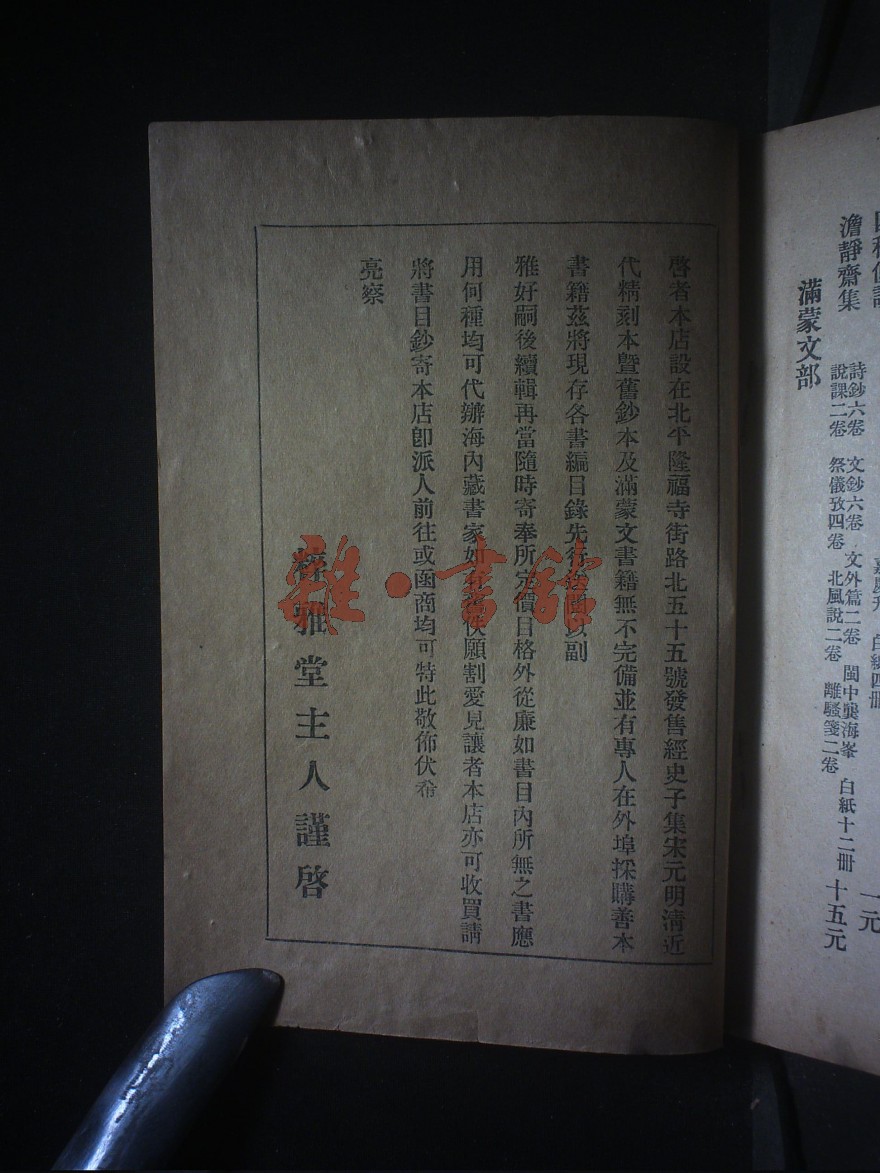 啓者本店設在北平隆福寺街路北五十五號發售經史子集宋元明清近
代精刻本曁舊鈔本及滿蒙文書籍無不完備並有專人在外埠採購善本
書籍茲將現存各書編目錄先行副
雅好嗣後續輯再當隨時寄奉所定價目格外從廉如書目內所無之書應
用何種均可代辦海內藏書家如有佚願割愛見讓者本店亦可收買請
將書目鈔寄本店卽派人前往或函商均可特此敬佈伏希
亮察
雅堂主人謹啓
雜·書舘
一元
澹靜齋集 詩鈔六卷 文鈔六卷 文外篇二卷 閩中龔海峯 白紙十二册 十五元
說課二卷 祭儀攷四卷 北風說二卷 離騷箋二卷
滿蒙文部